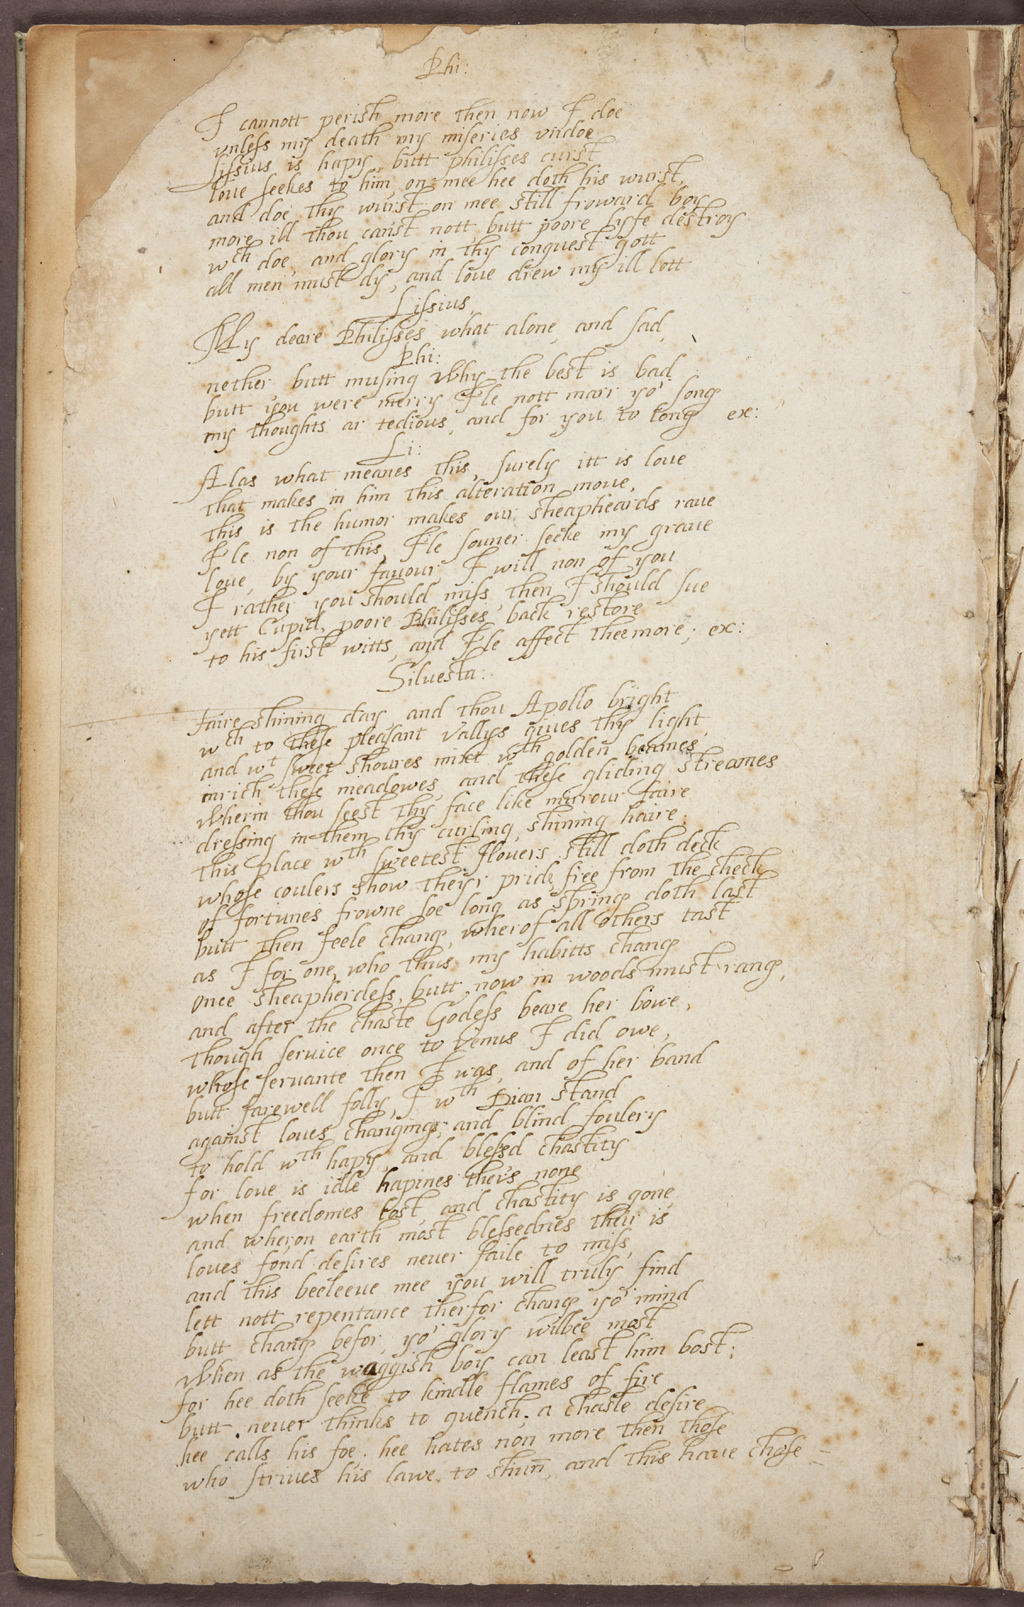 Phi:
I cannott perish more then now I doe
unless my death my miseries undoe
Lissius is hapy, butt philisses curst
loue seekes to him, on mee hee doth his wurst,
and doe thy wurst on mee still froward boy
more ill thou canst nott, butt poore lyfe destroy
wth doe, and glory in thy conquest gott
all men must dy, and loue drew my ill lott
Lissius
My deare Philisses what alone, and sad,
Phi:
nether butt musing why the best is bad,
butt you were merry I'le nott marr yor song
my thoughts ar tedious, and for you to long ex:
Li:
Alas what meanes this, surely itt is loue
that makes in him this alteration moue,
this is the humor makes our sheapheards raue
I'le non of this, I'le souner seeke my graue
loue, by your fauour I will non of you
I rather you should miss, then I should sue
yett Cupid, poore Philisses, back restore
to his first witts, and I'le affect thee more; ex:
Siluesta:
faire shining day, and thou Apollo bright
wch to these pleasant vallys giues thy light,
and wt sweet shoures mixt wth golden beames
inrich these meadowes, and these gliding streames
wherin thou seest thy face like mirrour faire
dressing in them thy curling, shining haire,
this place wth sweetest flouers still doth deck
whose coulers show theyr pride, free from the check
of fortunes frowne soe long as spring doth last
butt then feele chang, wherof all others tast
as I for one, who thus my habitts chang
once sheapherdess, butt now in woods must rang,
and after the chaste Godess beare her bowe,
though seruice once to Venus I did owe,
whose seruante then I was, and of her band
butt farewell folly, I wth Dian stand
against loues changings, and blind foulery
to hold wth hapy, and blessd chastity
for loue is idle hapines ther's none
when freedomes lost, and chastity is gone
and wheron earth most blessednes their is
loues fond desires neuer faile to miss,
and this beeleeue mee you will truly find
lett nott repentance therfor chang yor mind
butt chang befor yor glory wilbee most
when as the waggish boy can least him bost;
for hee doth seeke to kindle flames of fire
butt neuer thinks to quench, a chaste desire
hee calls his foe. hee hates non more then those
who striues his lawe to shun, and this haue chose